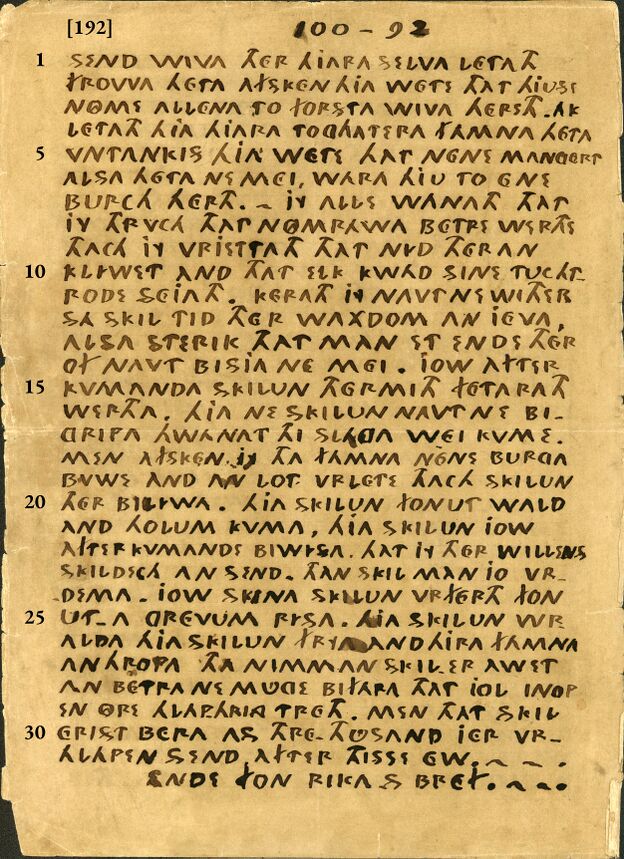 [192] 100 - 92
1 SEND WIVA THER HJARA SELVA LETATH
FROUVA HETA AFSKEN HJA WETE THAT HJU SE
NOME ALLENA TO FORSTA WIVA HERETH. AK
LETATH HJA HJARA TOGHATERA FAMNA HETA
5 VNTANKIS HJA WETE HAT NENE MANGERT
ALSA HETA NE MEI, WARA HJU TO ENE
BURCH HERTH. ~ JY ALLE WANATH THAT
JY THRVCH THAT NOMRAWA BETRE WERTHE
THACH JY VRJETTATH THAT NYD THER AN
10 KLYWET AND THAT ELK KWAD SINE TUCHT-
RODE SEJATH. KERATH JY NAVT NE WITHER
SA SKIL TID THER WAXDOM AN JEVA,
ALSA STERIK THAT MAN ET ENDE THER
OF NAVT BISIA NE MEI. JOW AFTER
15 KVMANDA SKILUN THERMITH FETARATH
WERTHA. HJA NE SKILUN NAVT NE BI-
GRIPA HWANAT THI SLAGA WEI KVME.
MEN AFSKEN JY THA FAMNA NENE BURGA
BVWE AND AN LOT VRLETE THACH SKILUN
20 THER BILYWA. HJA SKILUN FON UT WALD
AND HOLUM KVMA, HJA SKILUN JOW
AFTERKVMANDE BIWYSA. HAT JY THER WILLENS
SKILDECH AN SEND. THAN SKIL MAN JO VR-
DEMA. JOW SKINA SKILUN VRFERTH FON
25 UT-A GREVUM RYSA. HJA SKILUN WR
ALDA HJA SKILUN FRYA AND HJRA FAMNA
ANHROPA THA NIMMAN SKIL ER AWET
AN BETRA NE MUGE BIFARA THAT JOL INOP
EN ORE HLAPHRING TRETH. MEN THAT SKIL
30 ERIST BERA AS THRE THUSAND JER VR-
HLAPEN SEND AFTER THISSE EW. ~ ~ .
ENDE FON RIKA S BREF. ~ ~ .